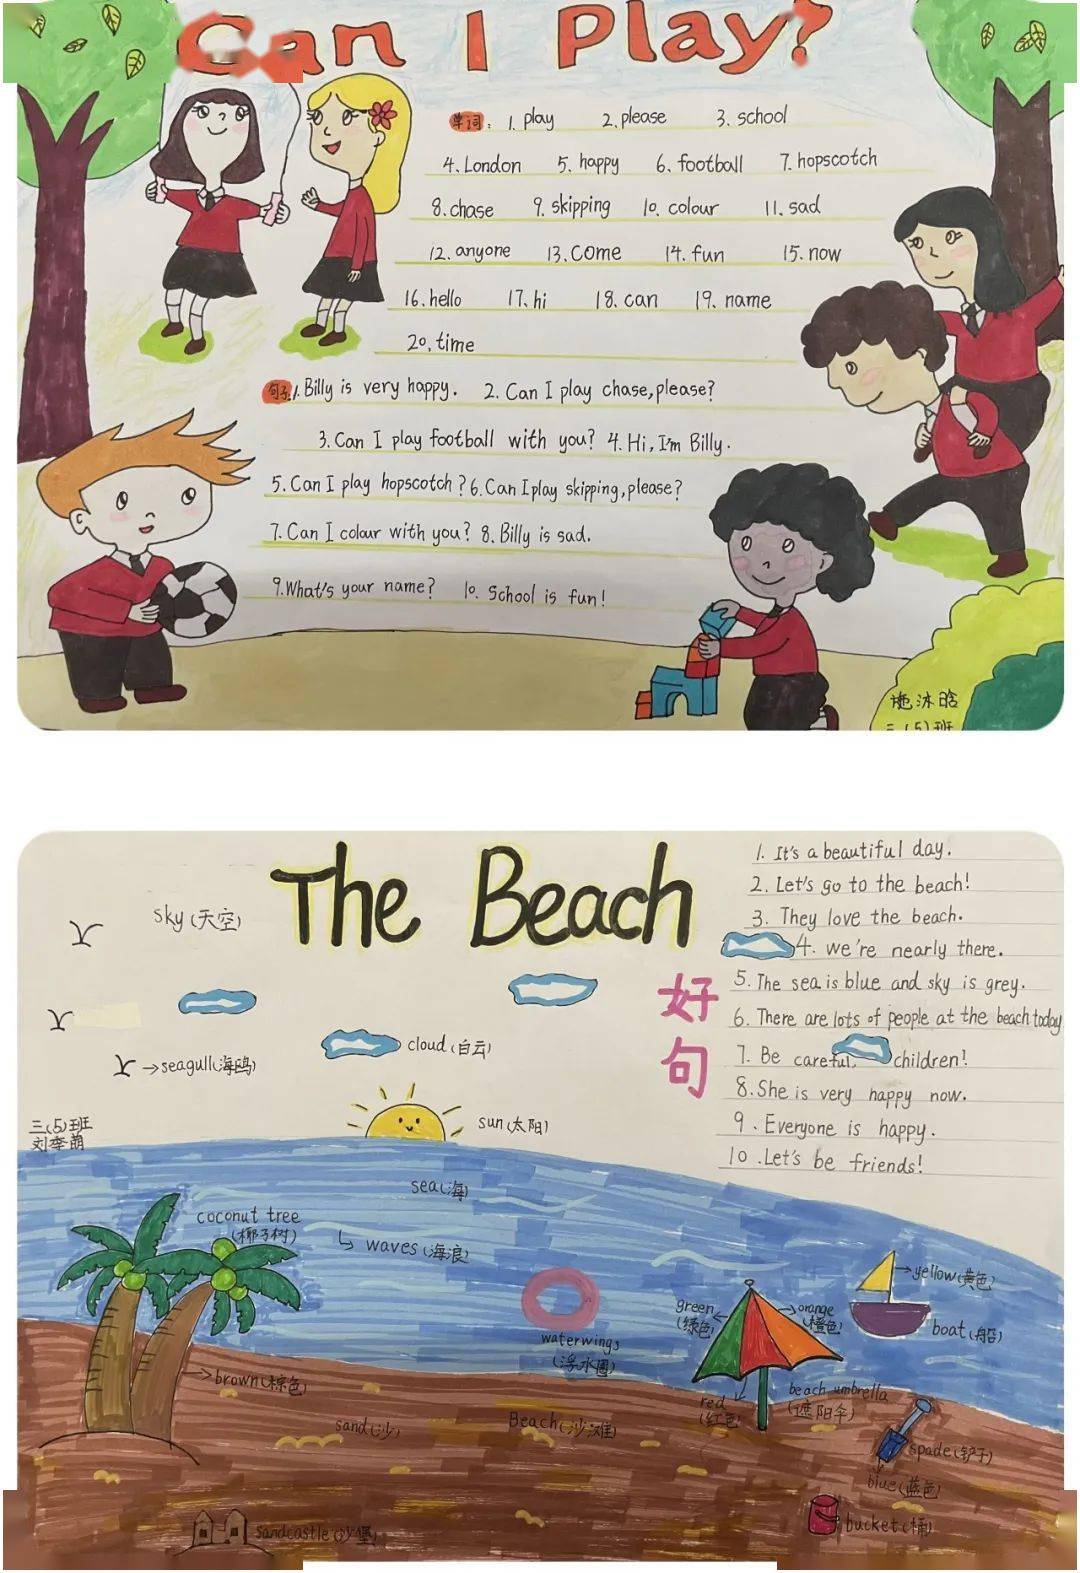 Can I Play?
单词: 1. play 2. please 3. school
4. London 5. happy 6. football 7. hopscotch
8. chase 9. skipping 10. colour 11. sad
12. anyone 13. come 14. fun 15. now
16. hello 17. hi 18. can 19. name
20. time
句子: 1. Billy is very happy. 2. Can I play chase, please?
3. Can I play football with you? 4. Hi, I'm Billy.
5. Can I play hopscotch? 6. Can I play skipping, please?
7. Can I colour with you? 8. Billy is sad.
9. What's your name? 10. School is fun!
施沐晗
三(5)班
The Beach
1. It's a beautiful day.
2. Let's go to the beach!
3. They love the beach.
4. We're nearly there.
5. The sea is blue and sky is grey.
6. There are lots of people at the beach today
7. Be careful, children!
8. She is very happy now.
9. Everyone is happy.
10. Let's be friends!
好句
sky(天空)
cloud(白云)
seagull(海鸥)
sun(太阳)
三(5)班
刘李萌
sea(海)
coconut tree
(椰子树)
waves(海浪)
yellow(黄色)
green
(绿色)
orange
(橙色)
boat(船)
waterwings
(浮水圈)
brown(棕色)
red
(红色)
beach umbrella
(遮阳伞)
sand(沙)
Beach(沙滩)
spade(铲子)
blue(蓝色)
sandcastle(沙堡)
bucket(桶)